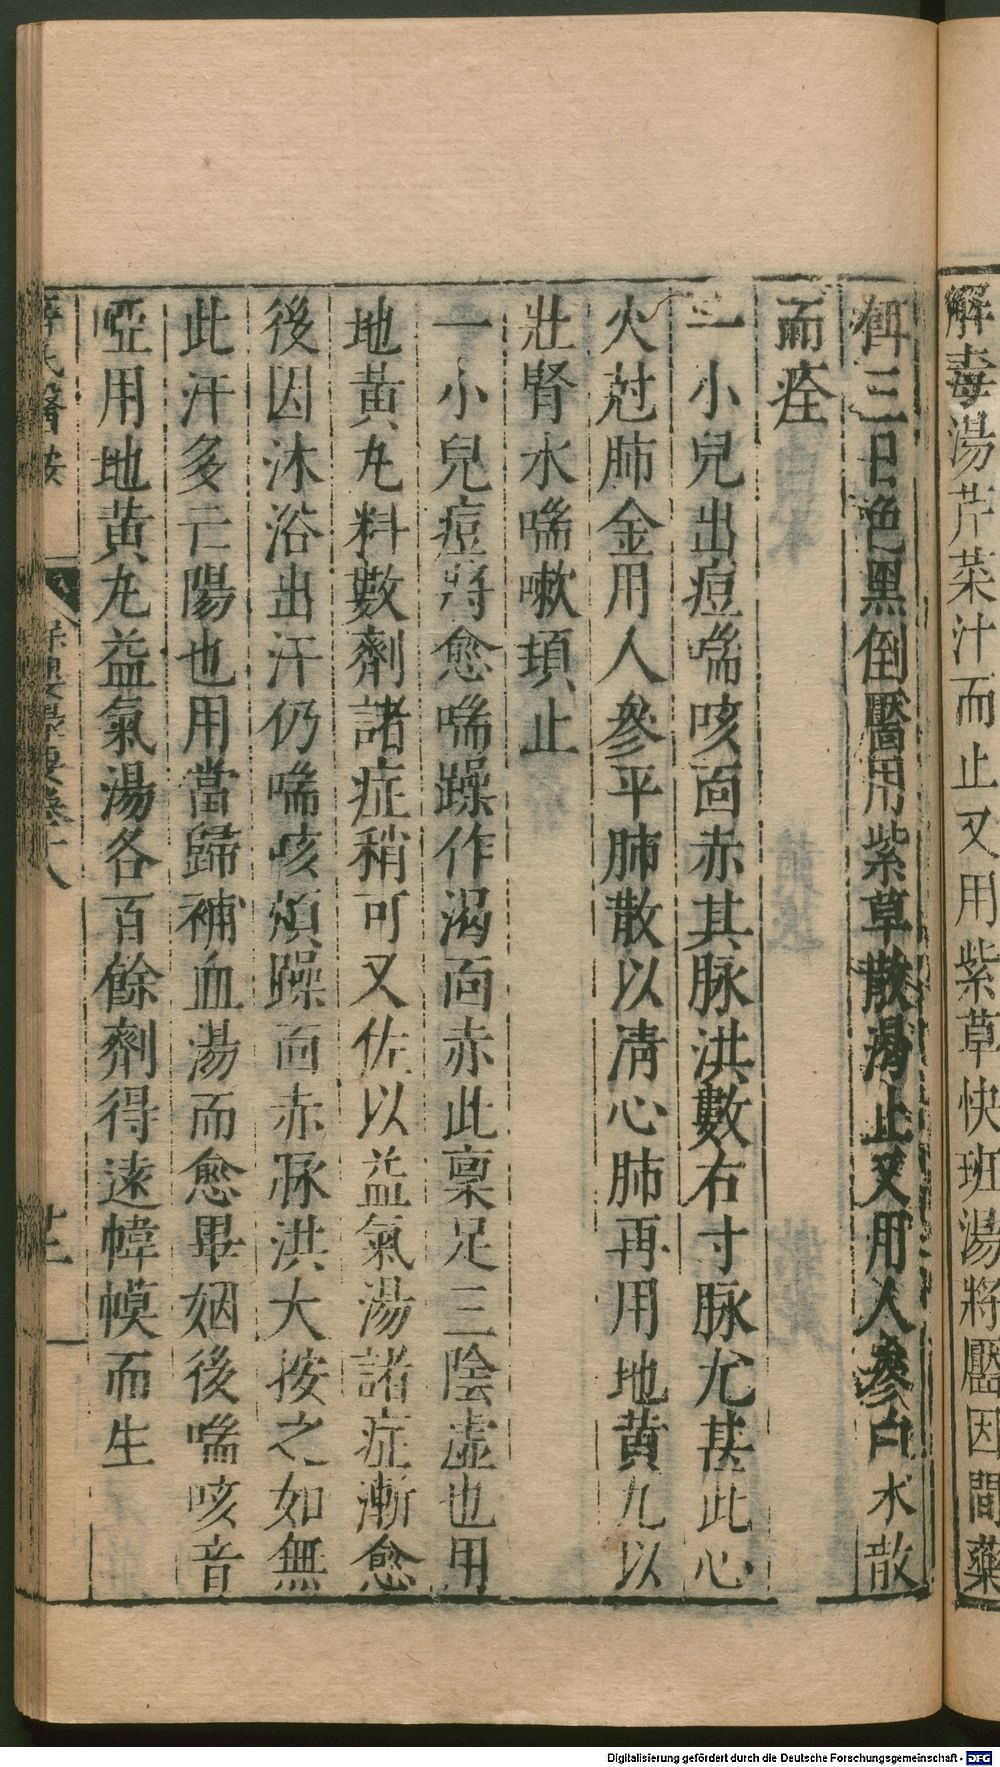 解毒湯芹菜汁而止又用紫草快班湯將靨因間藥
餌三日色黑倒靨用紫草散渴止又用人參白朮散
而痊
一小兒出痘喘咳面赤其脉洪數右寸脉尤甚此心
火尅肺金用人參平肺散以清心肺再用地黃丸以
壯腎水喘嗽頓止
一小兒痘將愈喘躁作渴面赤此稟足三陰虛也用
地黃丸料數劑諸症稍可又佐以益氣湯諸症漸愈
後因沐浴出汗仍喘咳煩躁面赤脉洪大按之如無
此汗多亡陽也用當歸補血湯而愈畢姻後喘咳音
啞用地黃丸益氣湯各百餘劑得遠幃幙而生
薛氏醫按 保嬰撮要卷十八 廿一
Digitalisierung gefördert durch die Deutsche Forschungsgemeinschaft - DFG